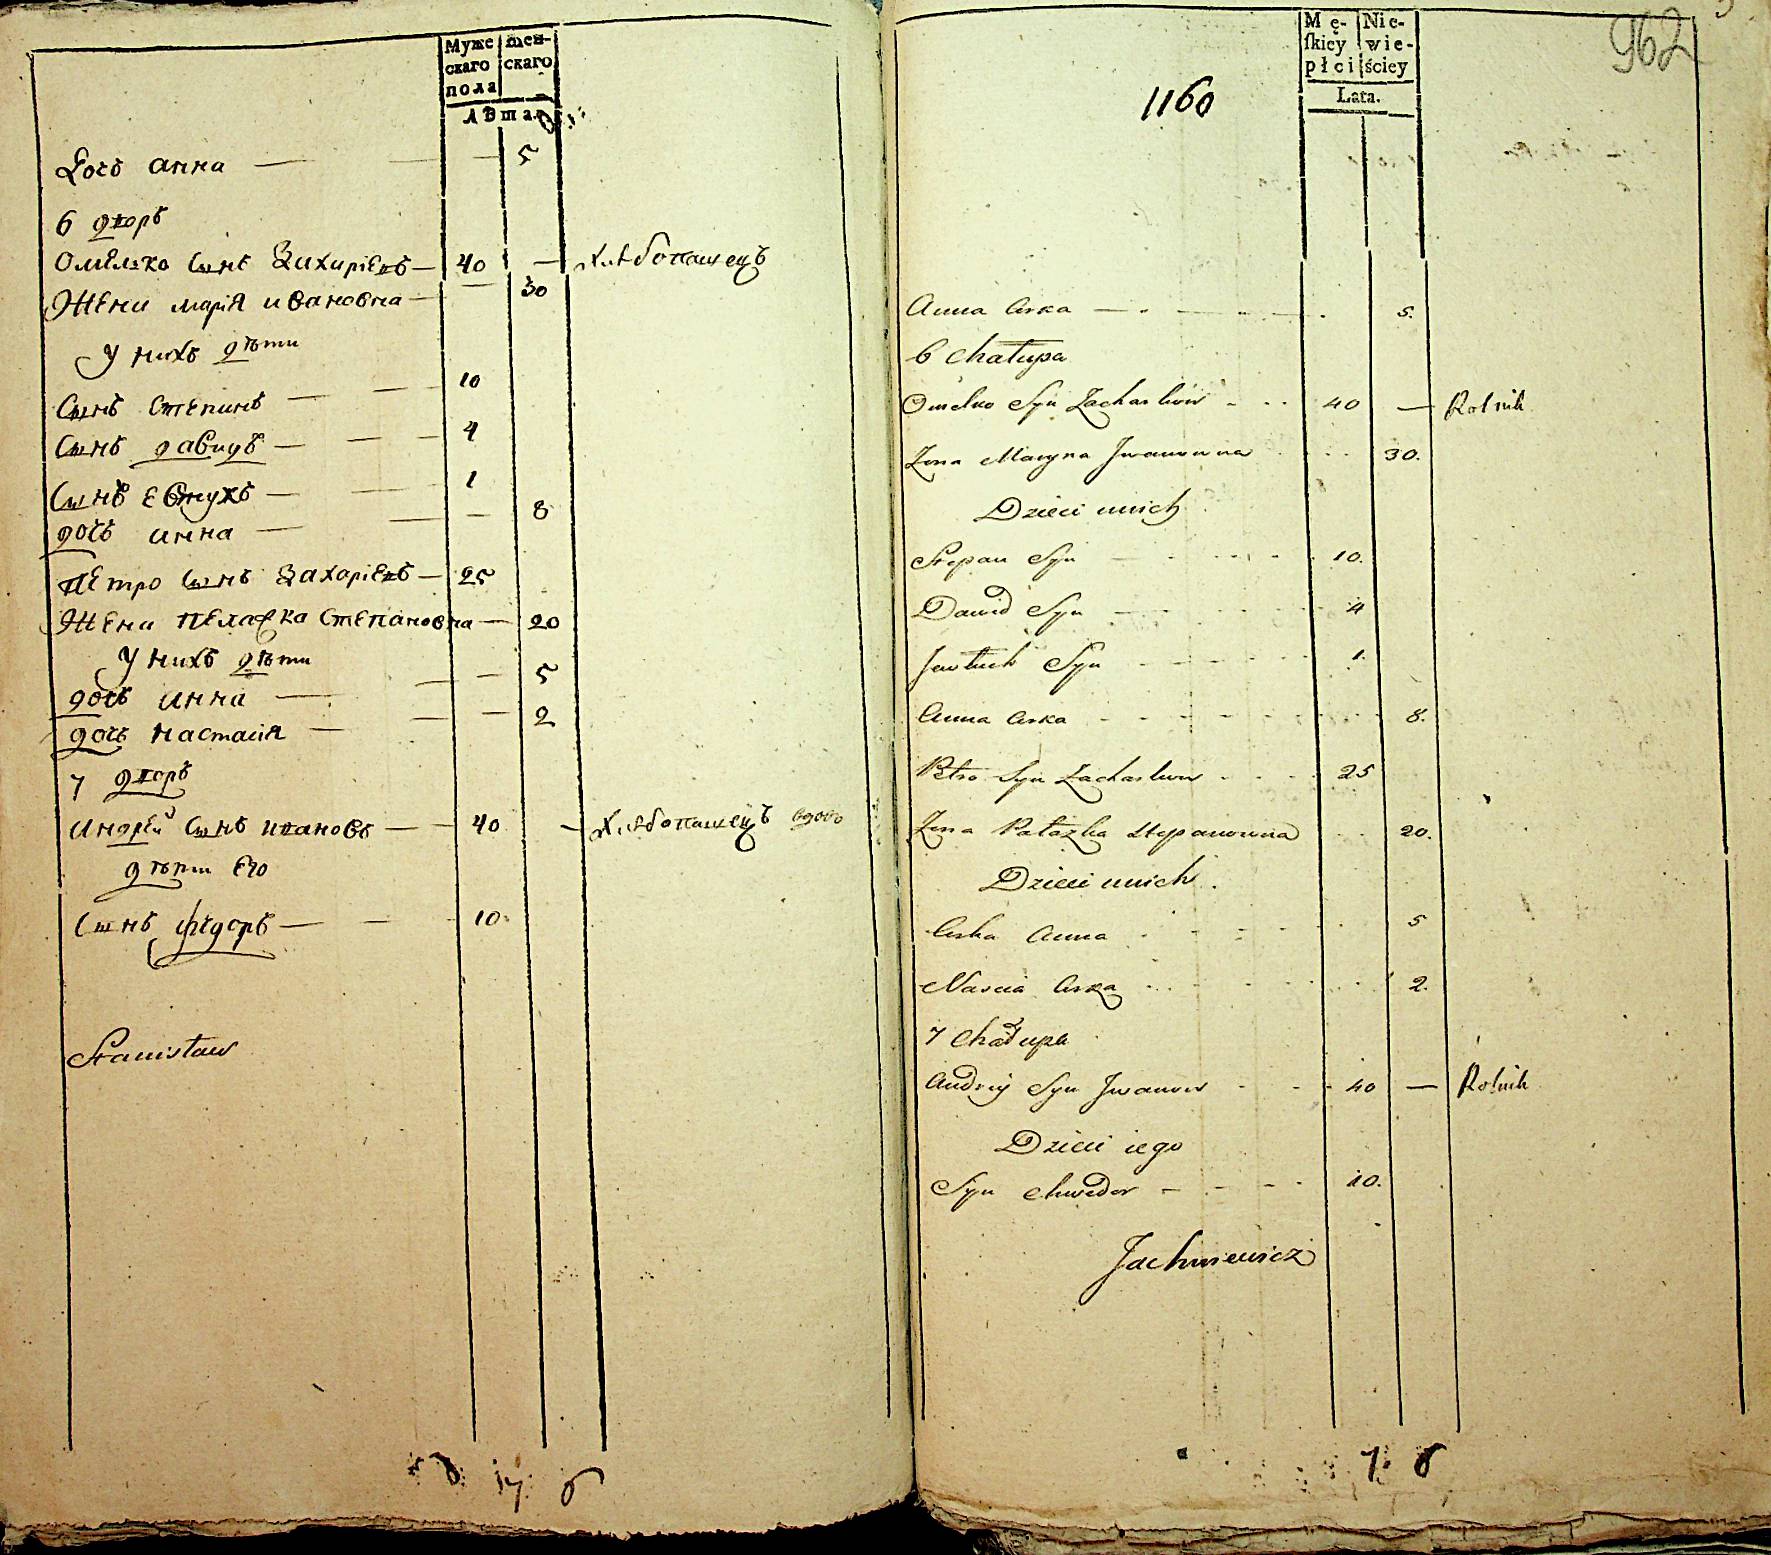 Муже
скаго
пола
жен-
скаго
Лѣта.
Дочъ анна — — — 5
6 дворъ
Омелько сынъ Захарiевъ — 40 — хлѣбопашецъ
Жена марiя ивановна — — 30
У нихъ дѣти
Сынъ степанъ — — 10
Сынъ давидъ — — — 4
Сынъ евтухъ — — 1
дочъ анна — — — 8
Петро сынъ Захарiевъ — 25
Жена пелашка степановна — 20
У нихъ дѣти
дочъ анна — — — 5
дочъ настасiя — — — 2
7 дворъ
андрей сынъ ивановъ — — 40 — хлѣбопашецъ вдовъ
дѣти его
Сынъ федоръ — — — 10
Stanisław
7 6
962
Mę-
skiey
płci
Nie-
wie-
ściey
Lata.
1160
Anna Curka — — — 5.
6 Chałupa
Omelko Syn Zacharkow 40 — Rolnik
Zona Maryna Iwanowna 30.
Dzieci unich
Stepan Syn — 10.
Dawid Syn — 4
Jawtuch Syn 1.
Anna Curka 8.
Petro Syn Zacharkow 25
Zona Pałazka Stepanowna 20.
Dzieci unich.
Curka Anna 5
Nascia Curka 2.
7 Chałupa
Andriy Syn Iwanow 40 — Rolnik
Dzieci iego
Syn Chwedor — 10.
Jachniewicz
7. 6